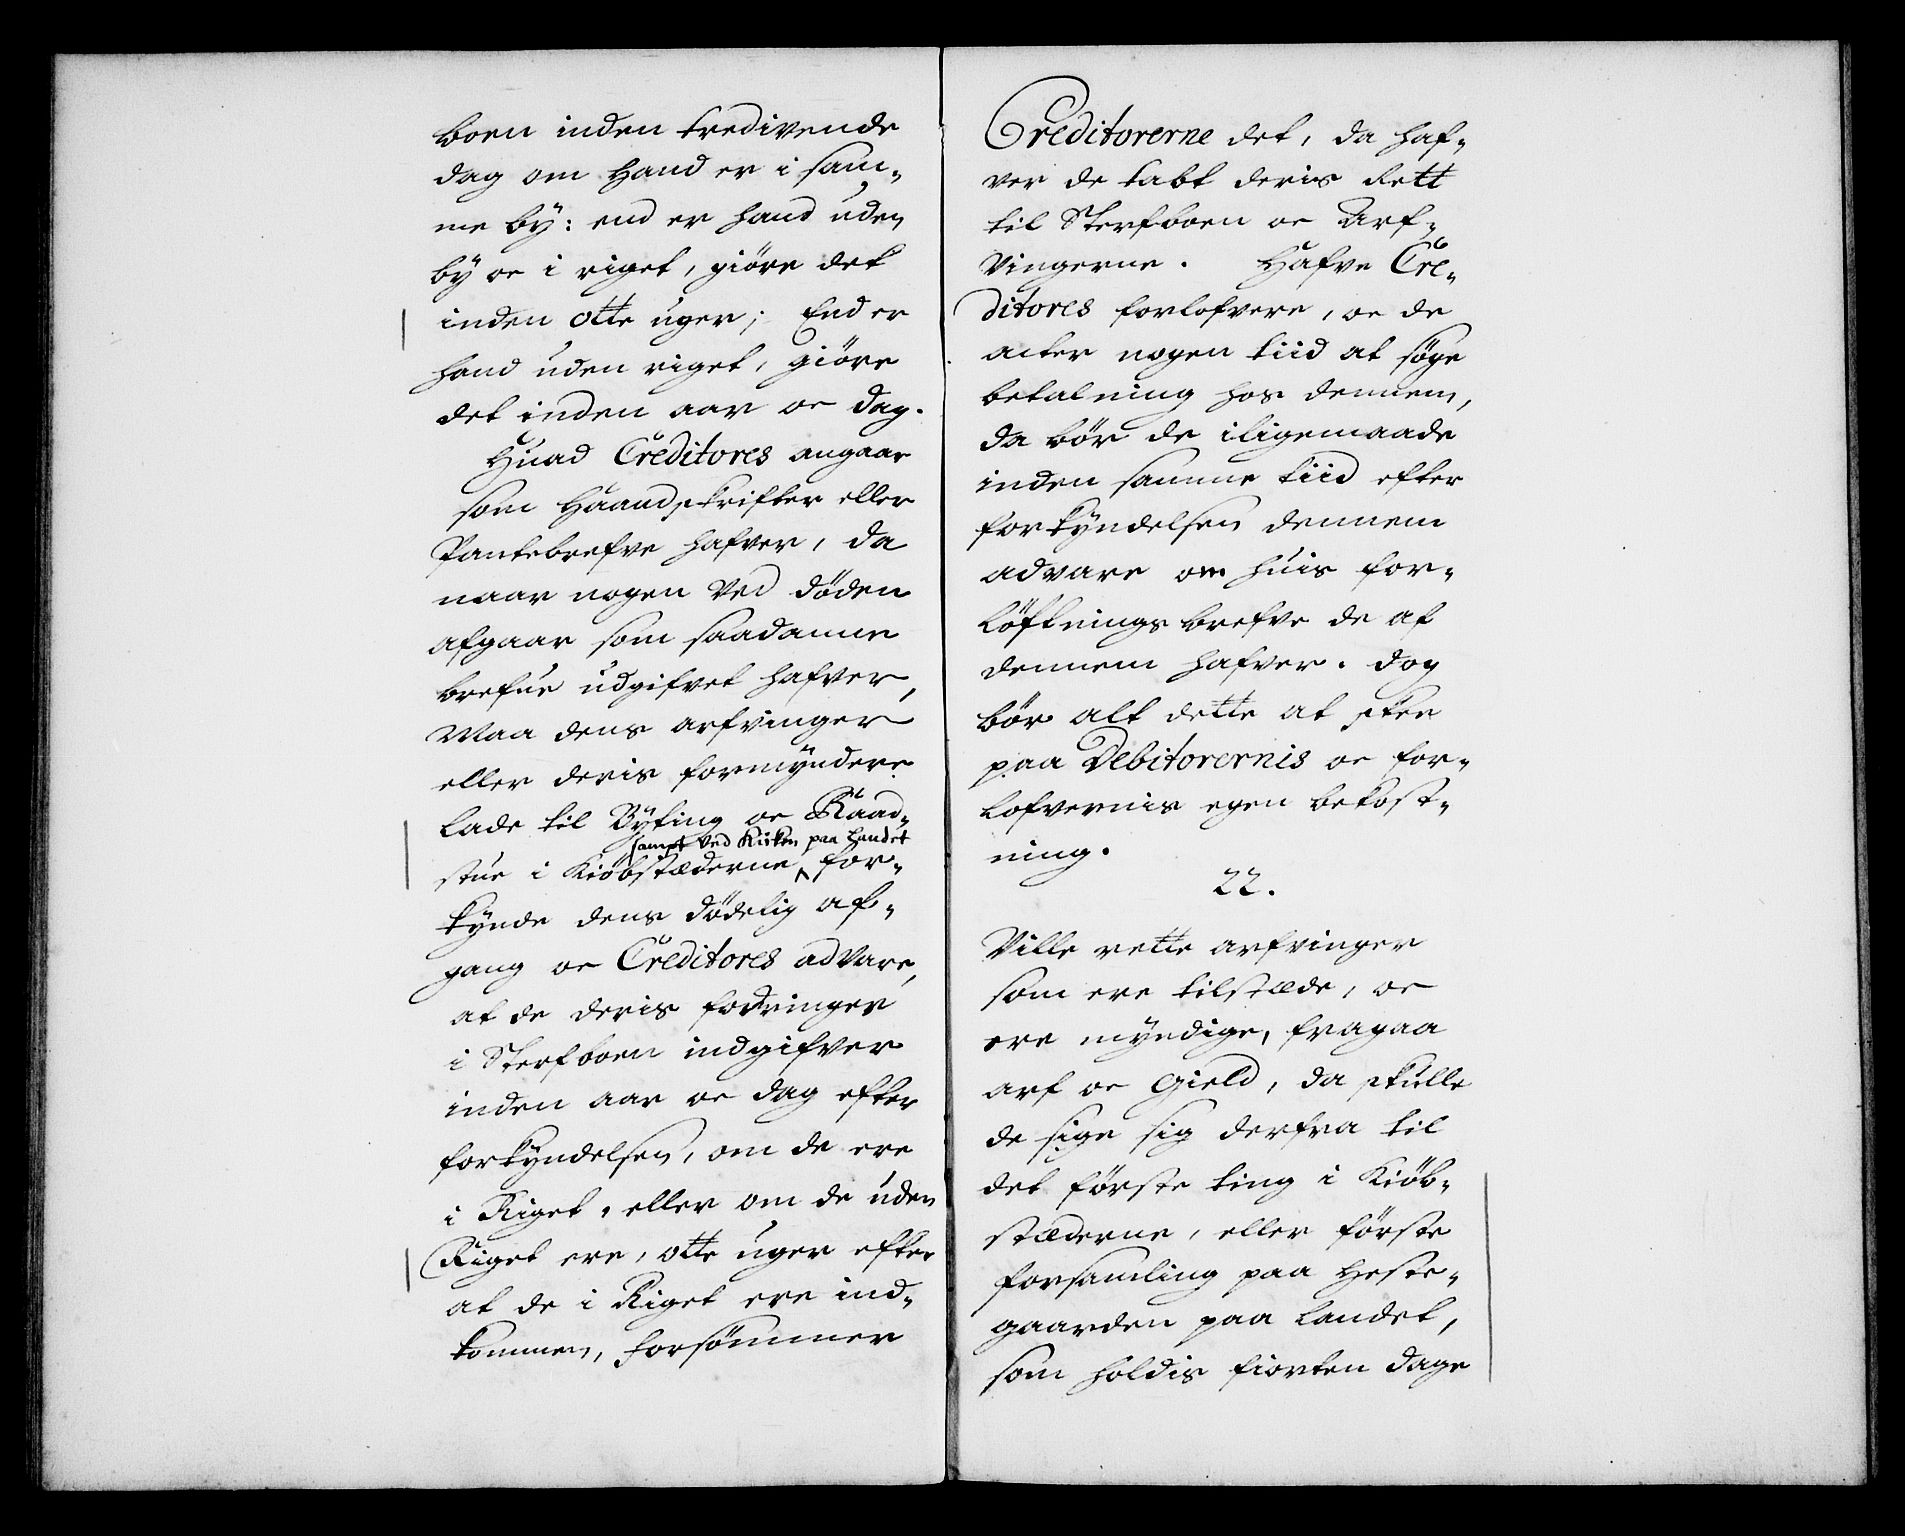 boen inden tredivende
dag om hand er i sam-
me by: end er hand uden
by oc i riget, giøre det
inden otte uger; End er
hand uden riget, giøre
det inden aar oc dag.
Huad Creditores angaar
som Haandskrifter eller
Pantebrefve hafver, da
naar nogen ved døden
afgaar som saadanne
brefue udgifvet hafver,
Maa dens arfvinger
eller deris formyndere
lade til Byting oc Raad-
sampt ved Kirken paa Landet
stue i Kiøbstæderne, for-
kynde dens dødelig af-
gang oc Creditores advare,
at de deris fodringer
i Sterfboen indgifver
inden aar oc dag efter
forkyndelsen, om de ere
i Riget, eller om de uden
Riget ere, otte uger efter
at de i Riget ere ind-
kommen, forsømmer
Creditorerne det, da haf-
ver de tabt deris Rett
til Sterfboen oc Arf-
vingerne. Hafve Cre-
ditores forlofvere, oc de
acter nogen tiid at søge
betalning hos dennem,
da bør de iligemaade
inden samme tiid efter
forkyndelsen dennem
advare om huis for-
løftnings brefve de af
dennem hafver. dog
bør alt dette at skee
paa Debitorernis oc for-
lofvernis egen bekost-
ning.
22.
Ville rette arfvinger
som ere tilstæde, oc
ere myndige, fragaa
arf oc Gield, da skulle
de sige sig derfra til
det første ting i Kiøb-
stæderne, eller første
forsamling paa Heste-
gaarden paa Landet,
som holdis fiorten dage